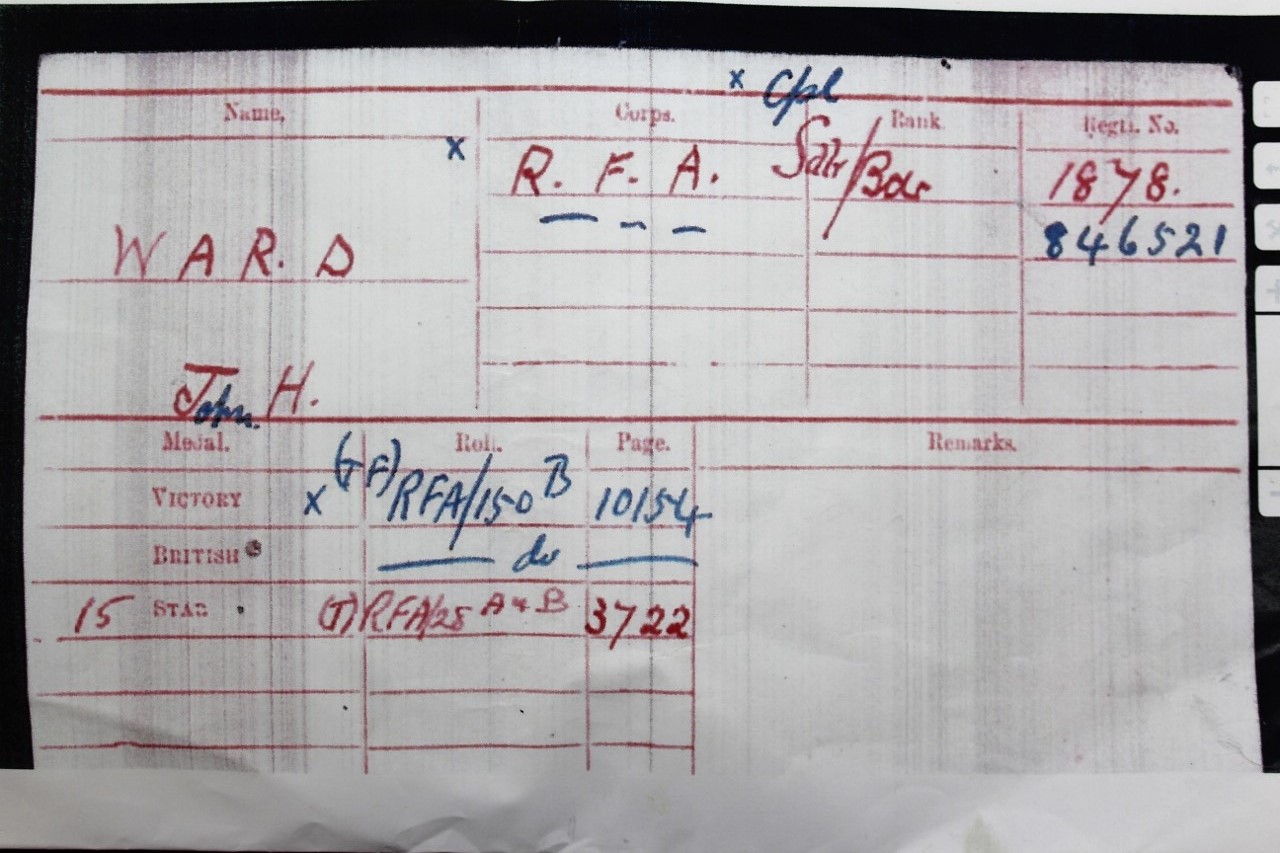 x Cpl
Name. Corps. Rank. Regtl. No.
x R. F. A. Sdlr/Bdr 1878.
846521
WARD
John H.
Medal. Roll. Page. Remarks.
VICTORY x (TF) RFA/150 B 10154
BRITISH do
15 STAR (T) RFA/25 A & B 3722